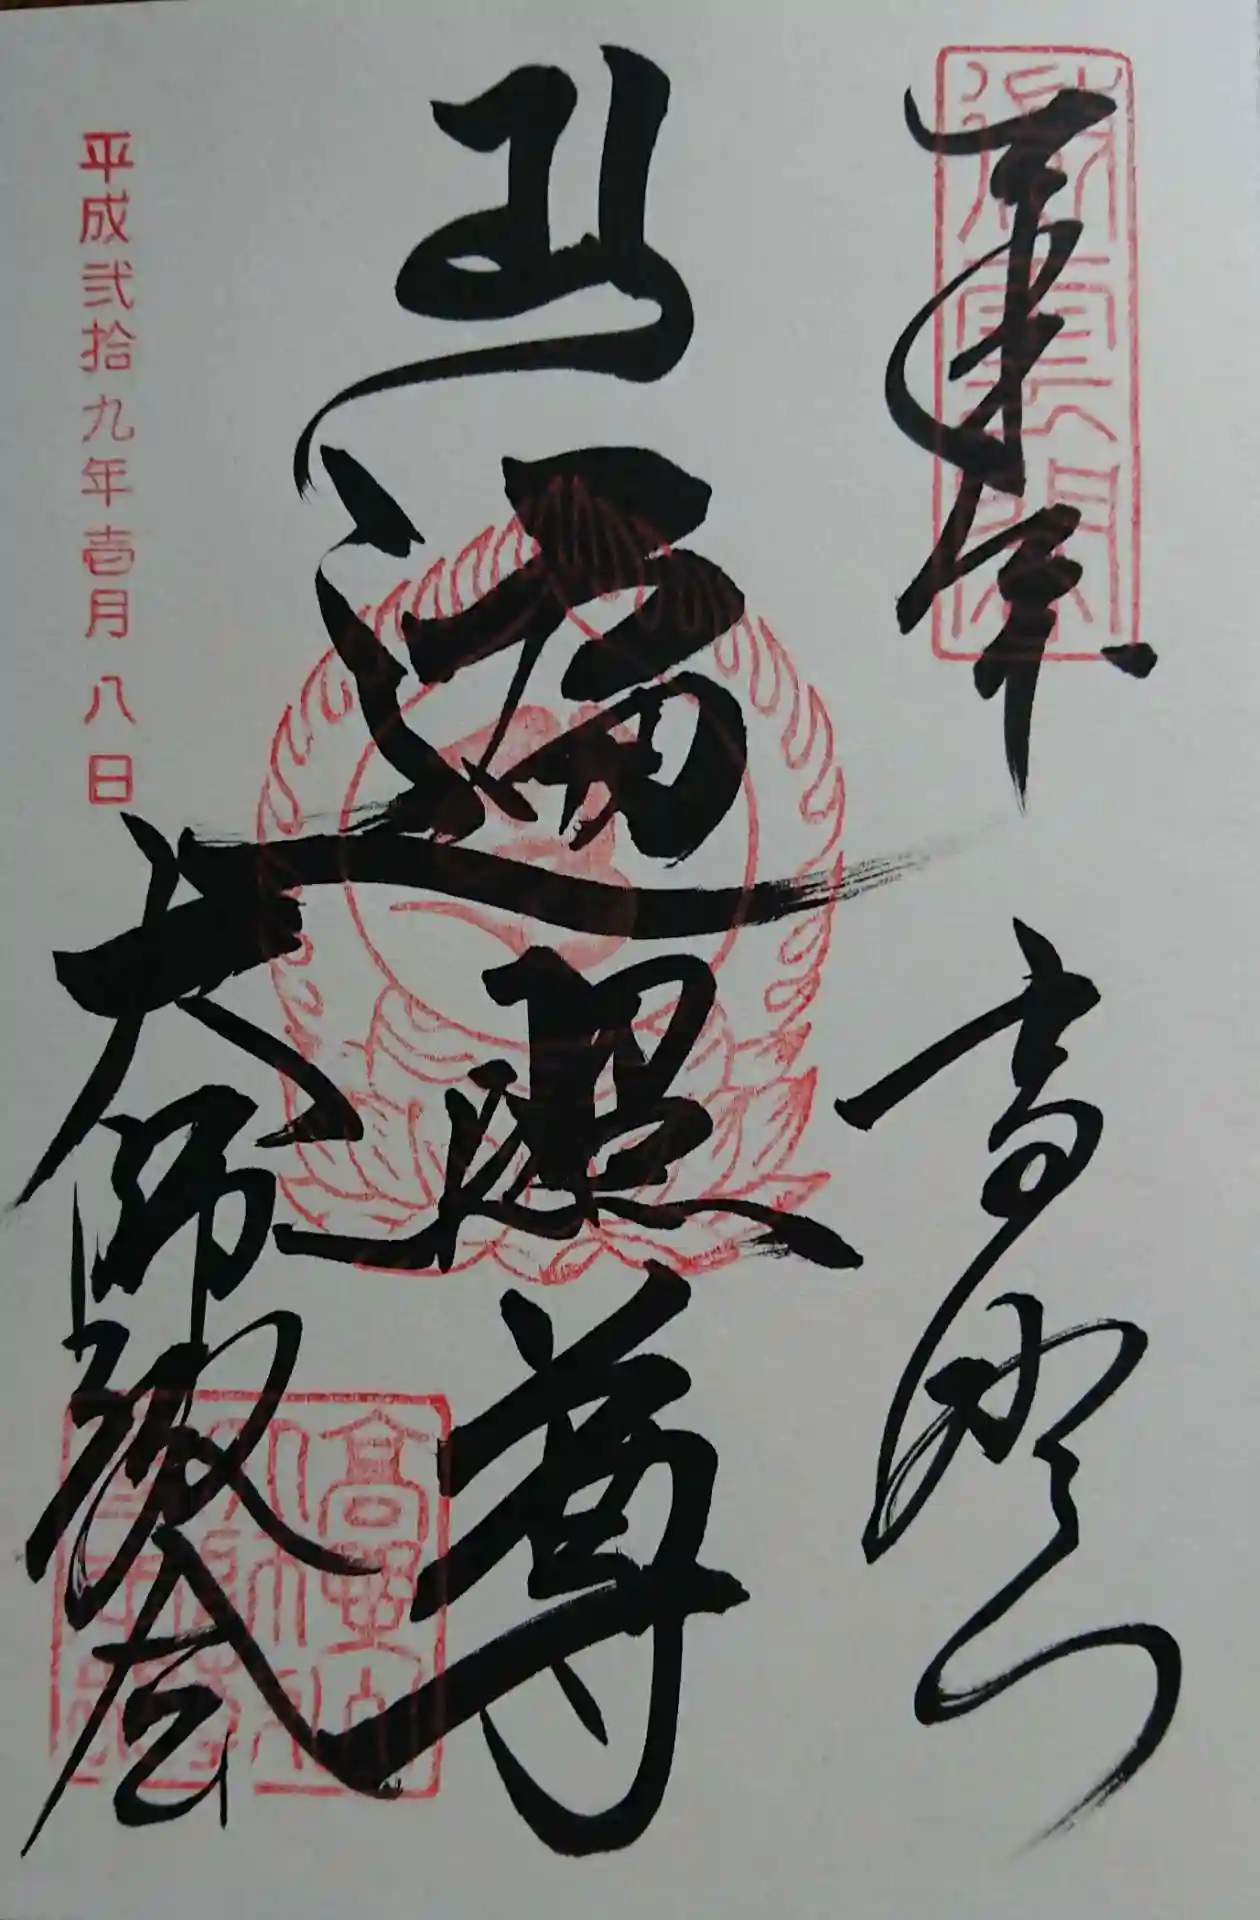 奉拝
高野山
遍照尊
大師教会
平成弐拾九年壱月八日
高野山